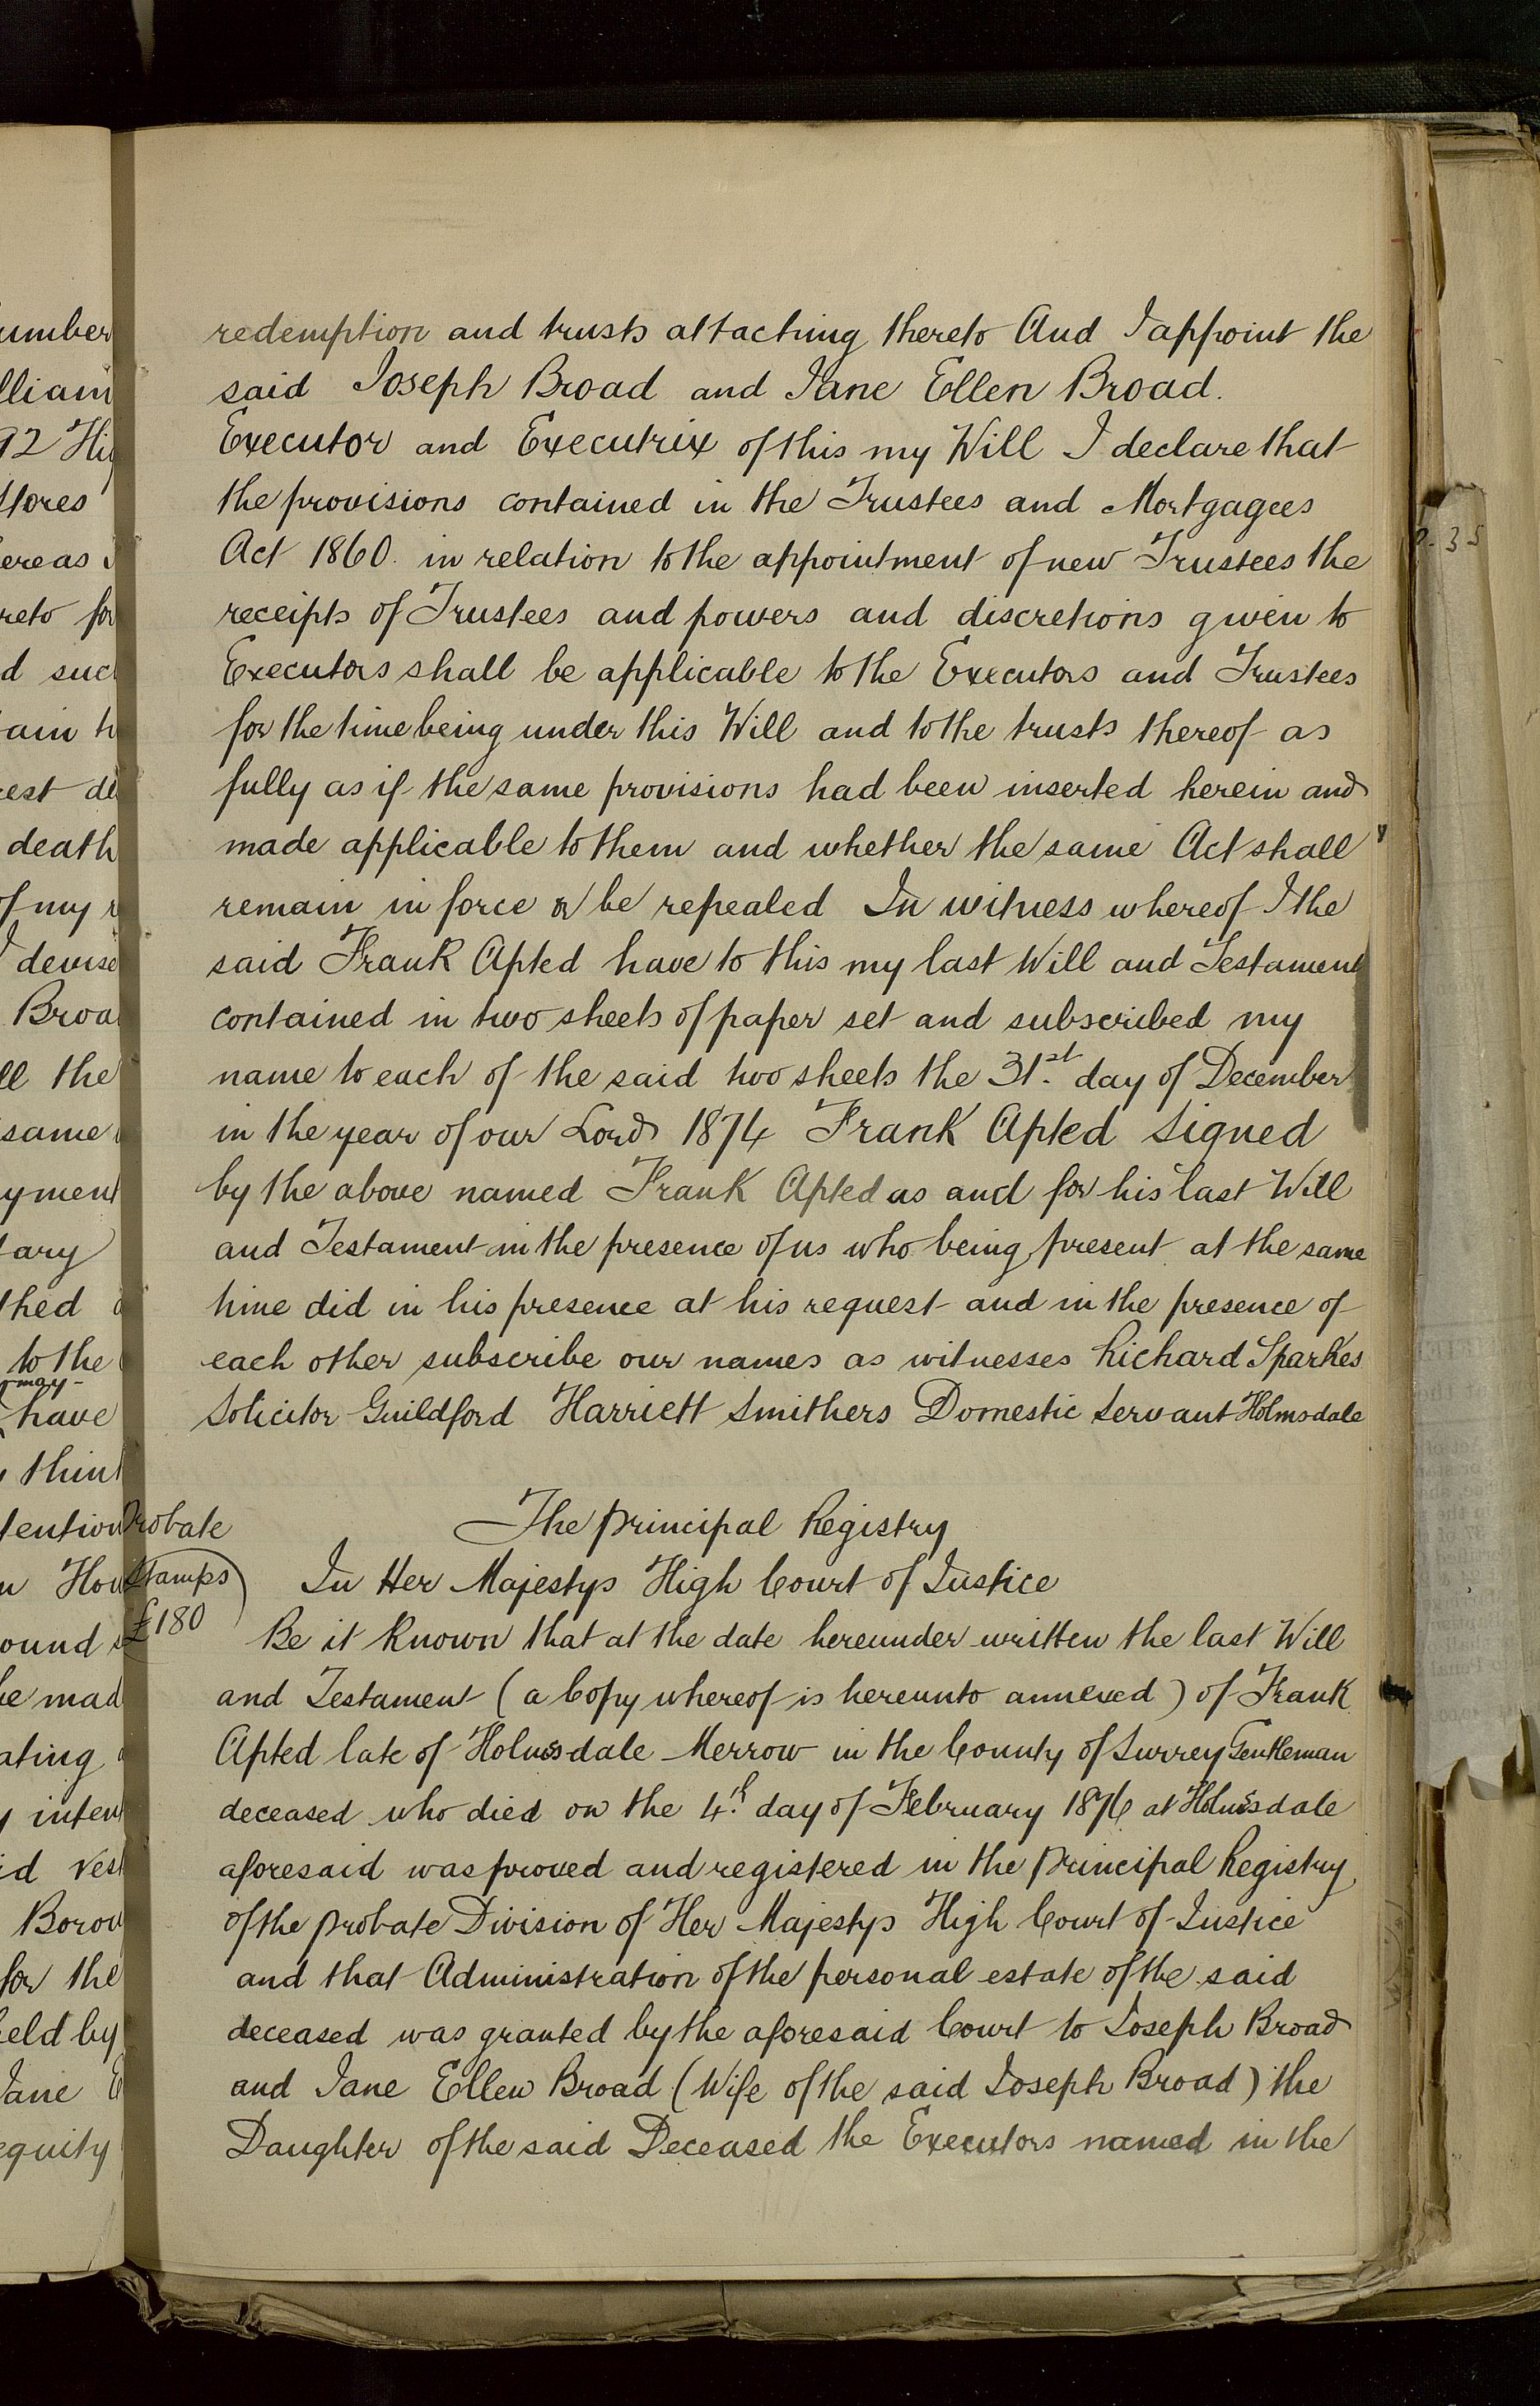 redemption and trusts attaching thereto And I appoint the
said Joseph Broad and Jane Ellen Broad.
Executor and Executrix of this my Will I declare that
the provisions contained in the Trustees and Mortgagees
Act 1860. in relation to the appointment of new Trustees the
receipts of Trustees and powers and discretions given to
Executors shall be applicable to the Executors and Trustees
for the time being under this Will and to the trusts thereof as
fully as if the same provisions had been inserted herein and
made applicable to them and whether the same Act shall
remain in force or be repealed In witness whereof I the
said Frank Apted have to this my last Will and Testament
contained in two sheets of paper set and subscribed my
name to each of the said two sheets the 31st. day of December
in the year of our Lord 1874 Frank Apted Signed
by the above named Frank Apted as and for his last Will
and Testament in the presence of us who being present at the same
time did in his presence at his request and in the presence of
each other subscribe our names as witnesses Richard Sparkes
Solicitor Guildford Harriett Smithers Domestic Servant Holmsdale
Probate
Stamps
£180
The Principal Registry
In Her Majestys High Court of Justice
Be it known that at the date hereunder written the last Will
and Testament (a Copy whereof is hereunto annexed) of Frank
Apted late of Holmsdale Merrow in the County of Surrey Gentleman
deceased who died on the 4th. day of February 1876 at Holmsdale
aforesaid was proved and registered in the Principal Registry
of the Probate Division of Her Majestys High Court of Justice
and that Administration of the personal estate of the said
deceased was granted by the aforesaid Court to Joseph Broad
and Jane Ellen Broad (Wife of the said Joseph Broad) the
Daughter of the said Deceased the Executors named in the